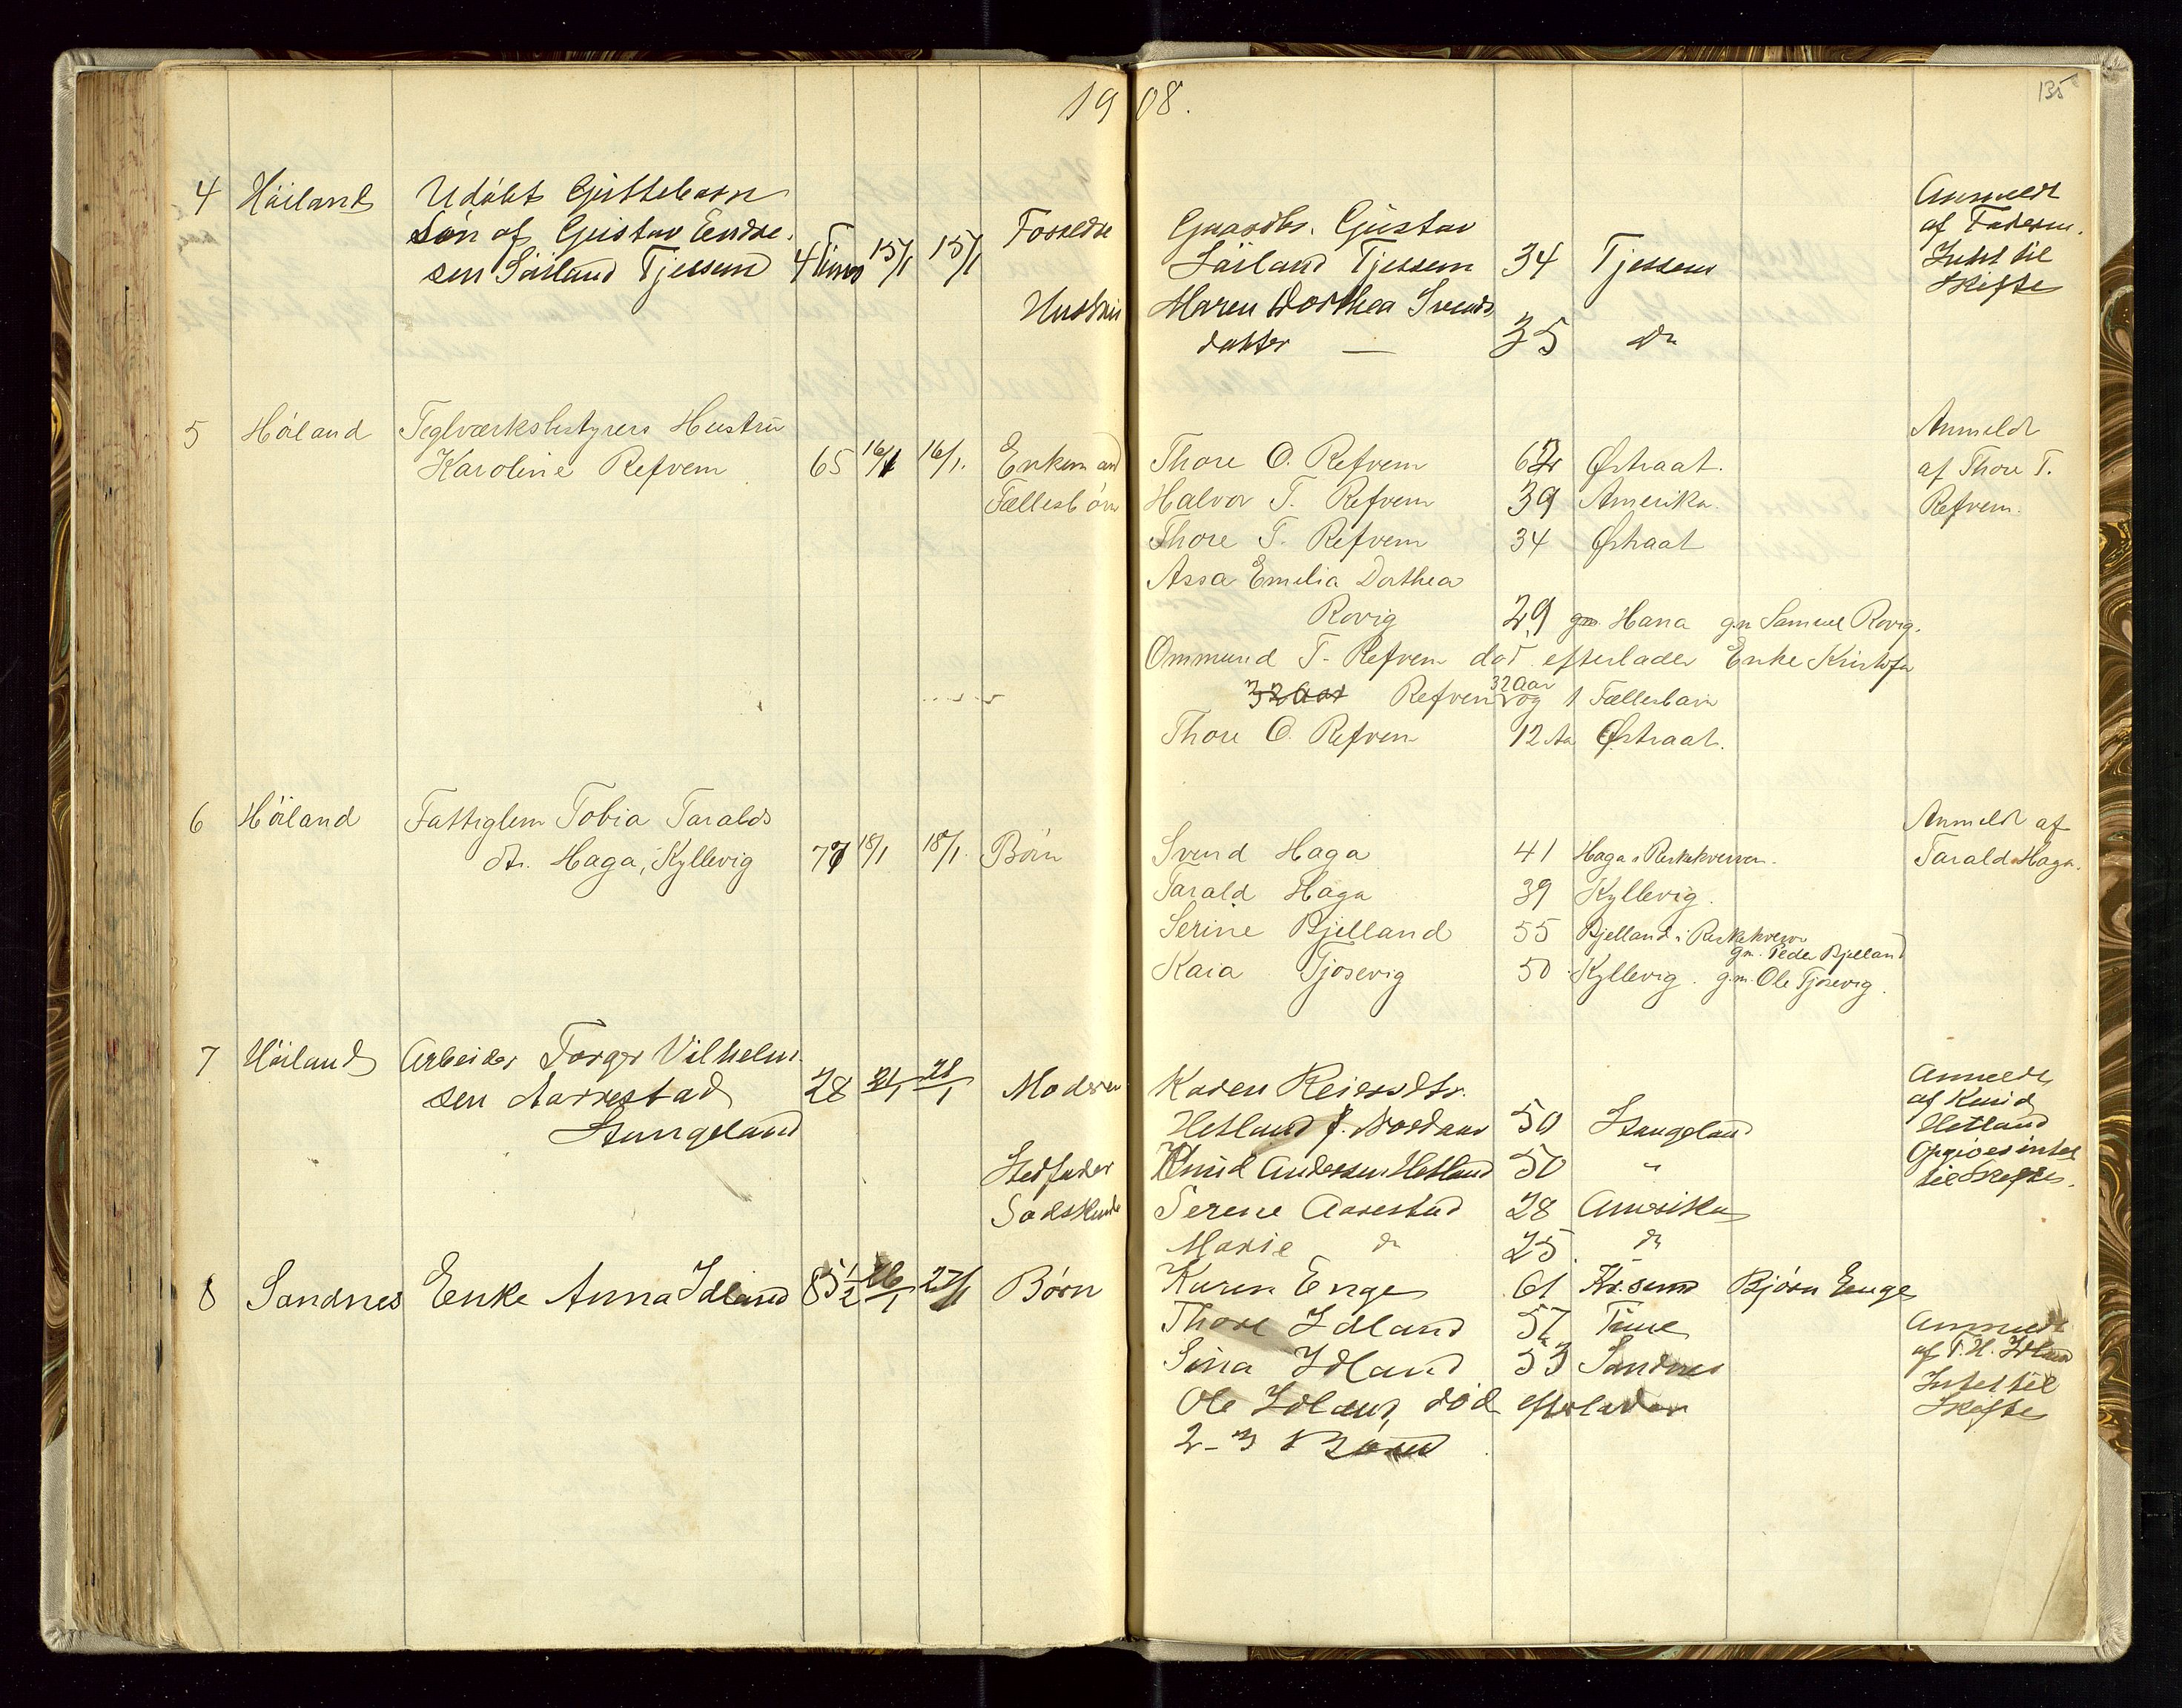 1908.
135
4 Höiland Udöbt Guttebarn
Søn af Gustav Endre-
sen Söiland Tjessem 4 Timer 15/1 15/1 Forældre Gaardbr. Gustav
Söiland Tjessem 34 Tjessem
Hustru Maren Dorthea Svends
datter — 35 do
Anmeldt
af Faderen.
Intet til
Skifte
5 Höland Teglværksbstyrers Hustru
Karoline Refvem 65 16/1 16/1. Enkemand Thore O. Refvem 62 Østraat.
Fællesbörn Halvor T. Refvem 39 Amerika.
Thore T. Refvem 34 Østraat
Assa Emilia Dorthea
Rovig 29 gm. Hana gm Samuel Rovig.
Ommund T. Refvem död efterlader Enke Kristofa
32 Aar Refvem 32 Aar og 1 Fællesbarn
Thore O. Refvem 12 Aa Østraat.
Anmeldt
af Thore T.
Refvem.
6 Höiland Fattiglem Tobia Taralds
dtr. Haga, Kyllevig 77 18/1 18/1. Börn Svend Haga 41 Haga i Riskekverven.
Tarald Haga 39 Kyllevig.
Serine Bjelland 55 Bjelland i Riskekverv
gm. Peder Bjelland
Kaia Tjosevig 50 Kyllevig. g.m. Ole Tjosevig.
Anmeldt af
Tarald Haga.
7 Höiland Arbeider Torger Vilhelm-
sen Aarrestad 28 21/1 21/1 Moderen Karen Reiersdtr.
Stangeland Hetland f. Nordaas 50 Stangeland
Stedfader Knud Andersen Hetland 50 "
Sødskende Serene Aarestad 28 Amerika
Marie do 25. do
Anmeldt
af Knud
Hetland
Opgives intet
til Skifte.
8 Sandnes Enke Anna Idland 85 1/2 26/1 27/1 Børn Karen Enge 61 Kr.sand Bjørn Enge
Thore Idland 57 Time
Sina Idland 53 Sandnes
Ole Idland, død efterlader
2-3 Børn
Anmeldt
af T. H. Idland
Intet til
Skifte